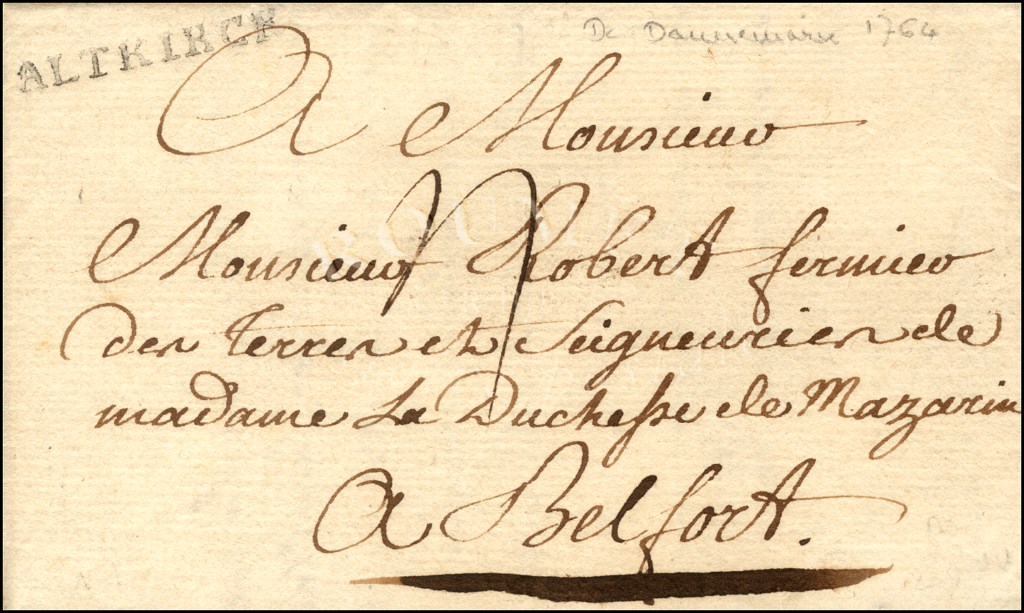 ALTKIRCH
De Dannemarie 1764
A Monsieur
Monsieur Robert fermier
des Terres et Seigneuries de
madame La Duchesse de Mazarin
A Belfort.